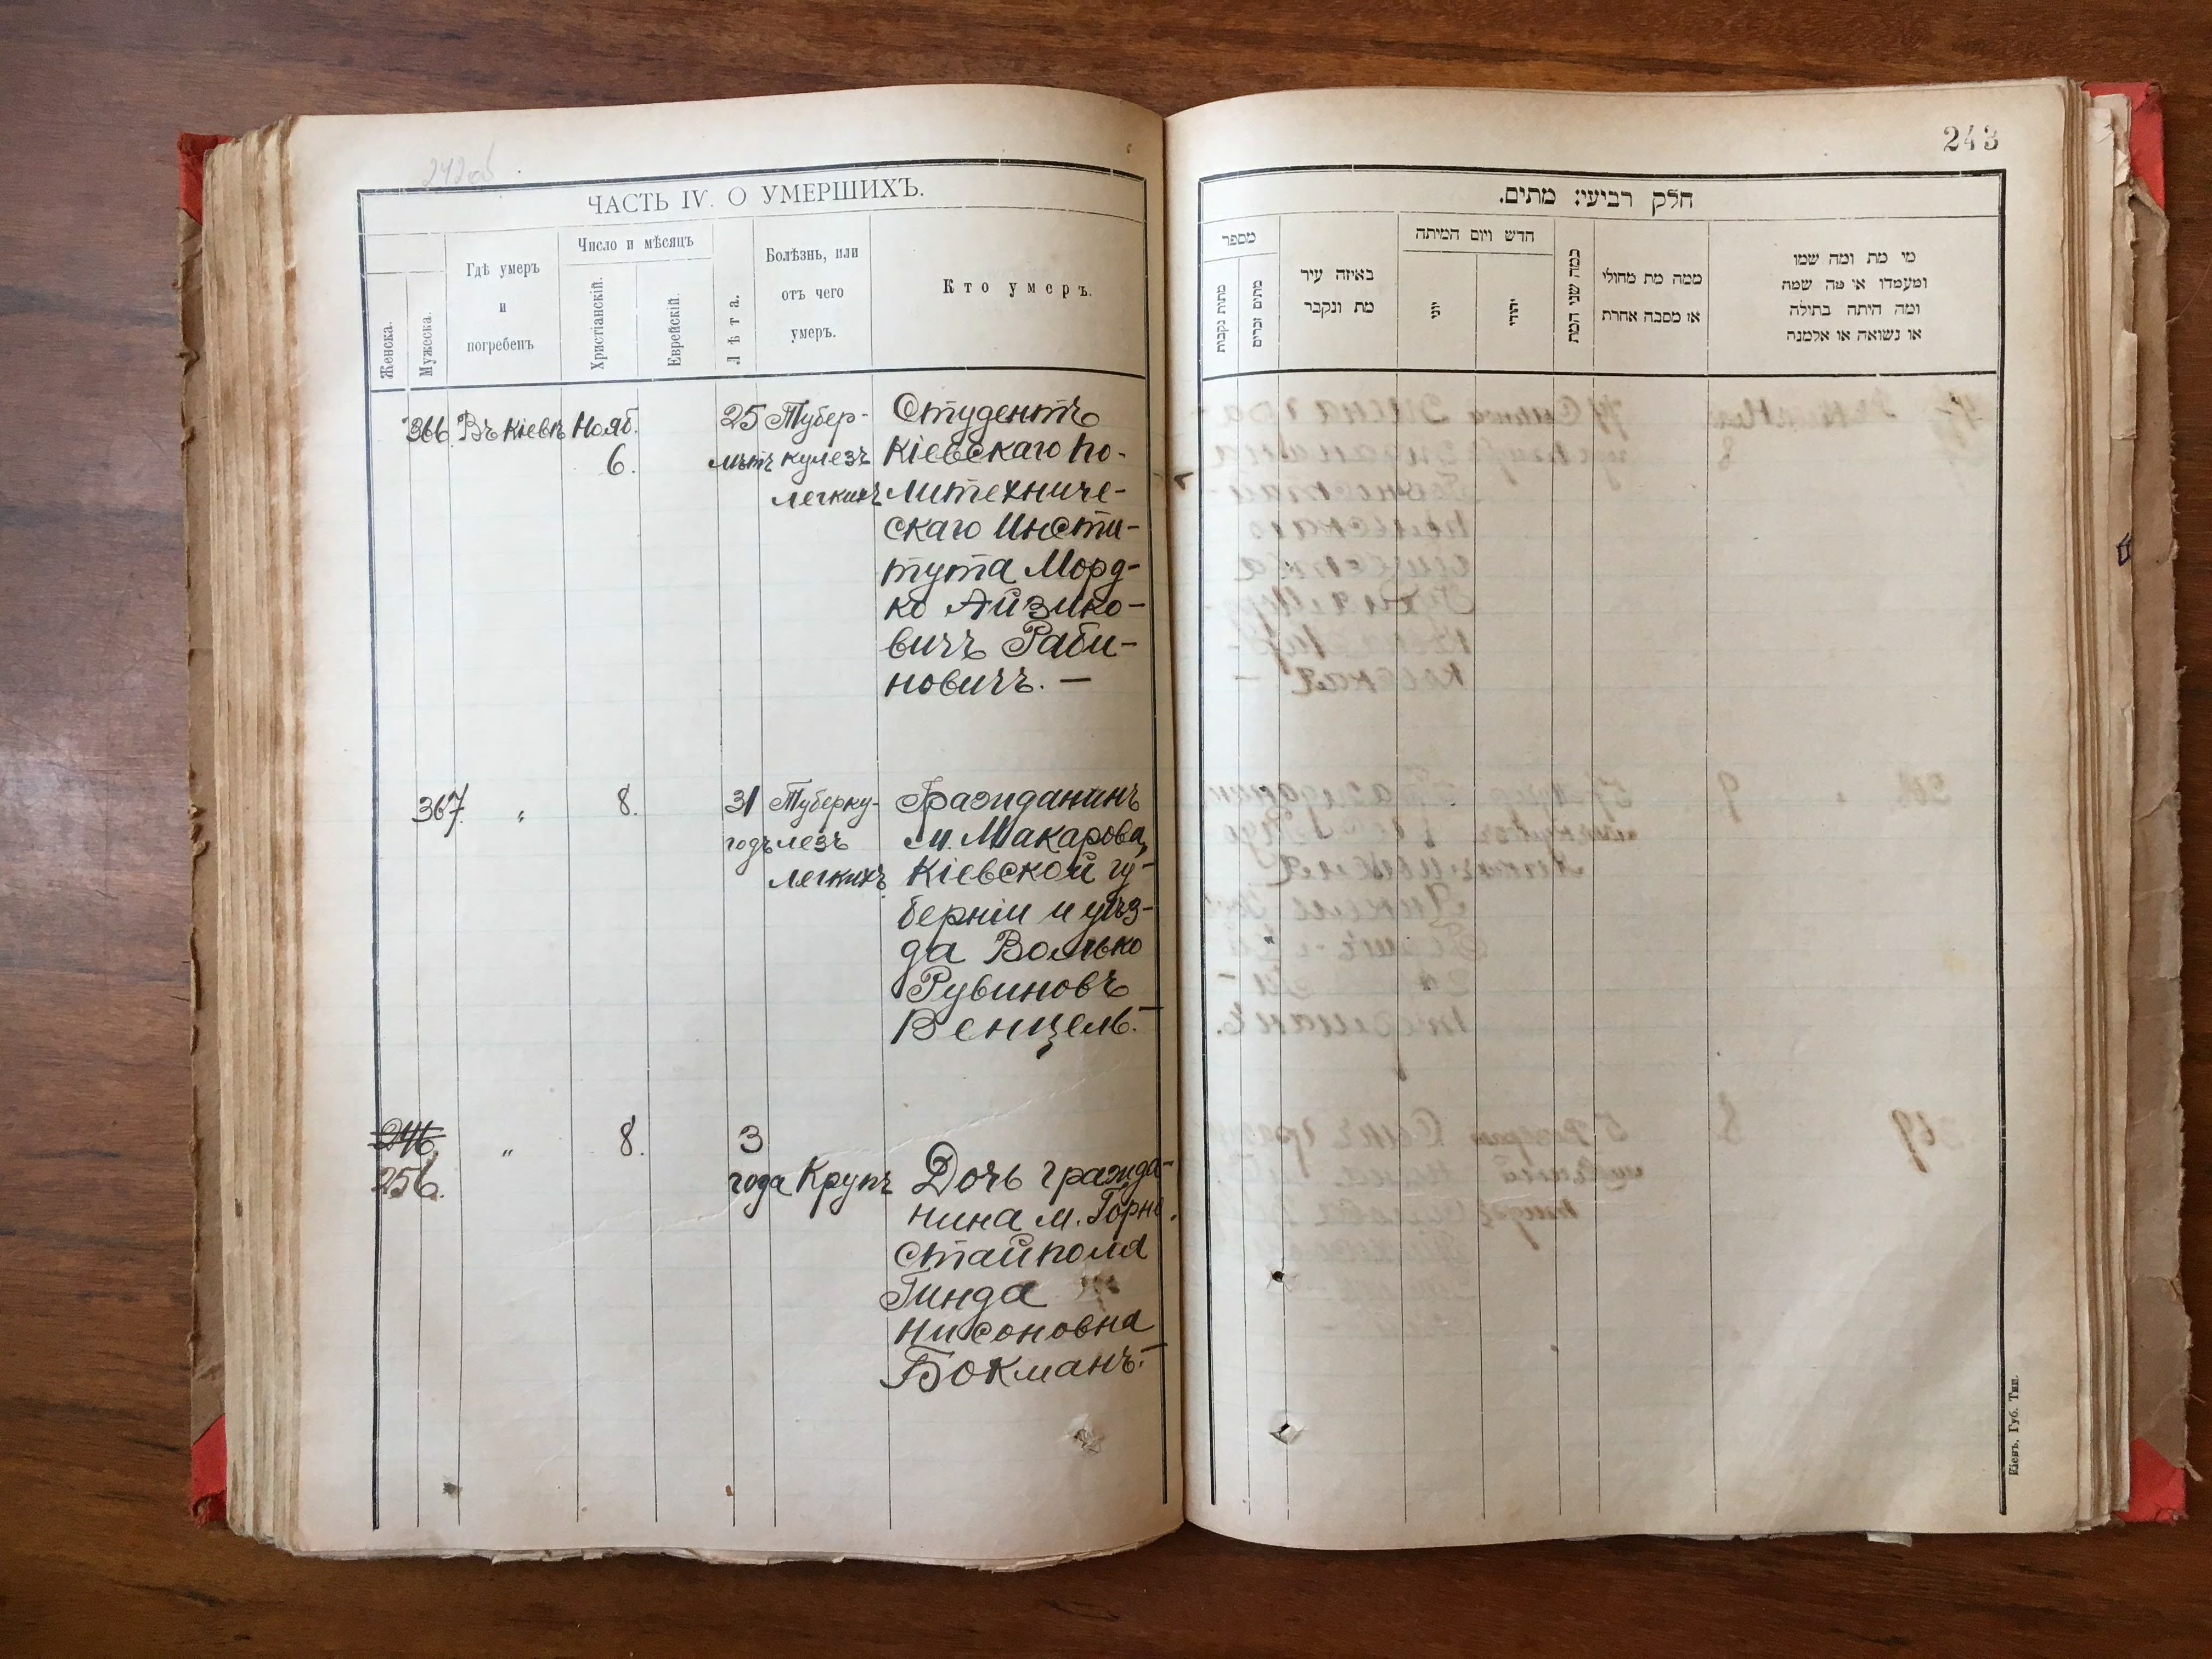 242об
ЧАСТЬ IV. О УМЕРШИХЪ.
Женска.
Мужеска.
Гдѣ умеръ
и
погребенъ
Число и мѣсяцъ
Христіанскій.
Еврейскій.
Лѣта.
Болѣзнь, или
отъ чего
умеръ.
Кто умеръ.
366. Въ Кіевѣ Нояб. 25 Тубер- Студентъ
6. лѣтъ кулезъ Кіевскаго По-
легкихъ литехниче-
скаго Инсти-
тута Морд-
ко Айзико-
вичъ Раби-
новичъ. —
367. " 8. 31 Туберку- Гражданинъ
годъ лезъ м. Макарова,
легкихъ Кіевской гу-
берніи и уѣз-
да Волько
Рувиновъ
Венцель. —
246. " 8. 3
256. года Крупъ Дочь гражда-
нина м. Горно
стайполя
Гинда
Нисоновна
Бокманъ. —
243
חלק רביעי: מתים.
מספר
מתות נקבות
מתים זכרים
באיזה עיר
מת ונקבר
חדש ויום המיתה
יוני
יהודי
כמה שני המת
ממה מת מחולי
או מסבה אחרת
מי מת ומה שמו
ומעמדו או מה שמה
ומה היתה בתולה
או נשואה או אלמנה
Кіевъ. Губ. Тип.